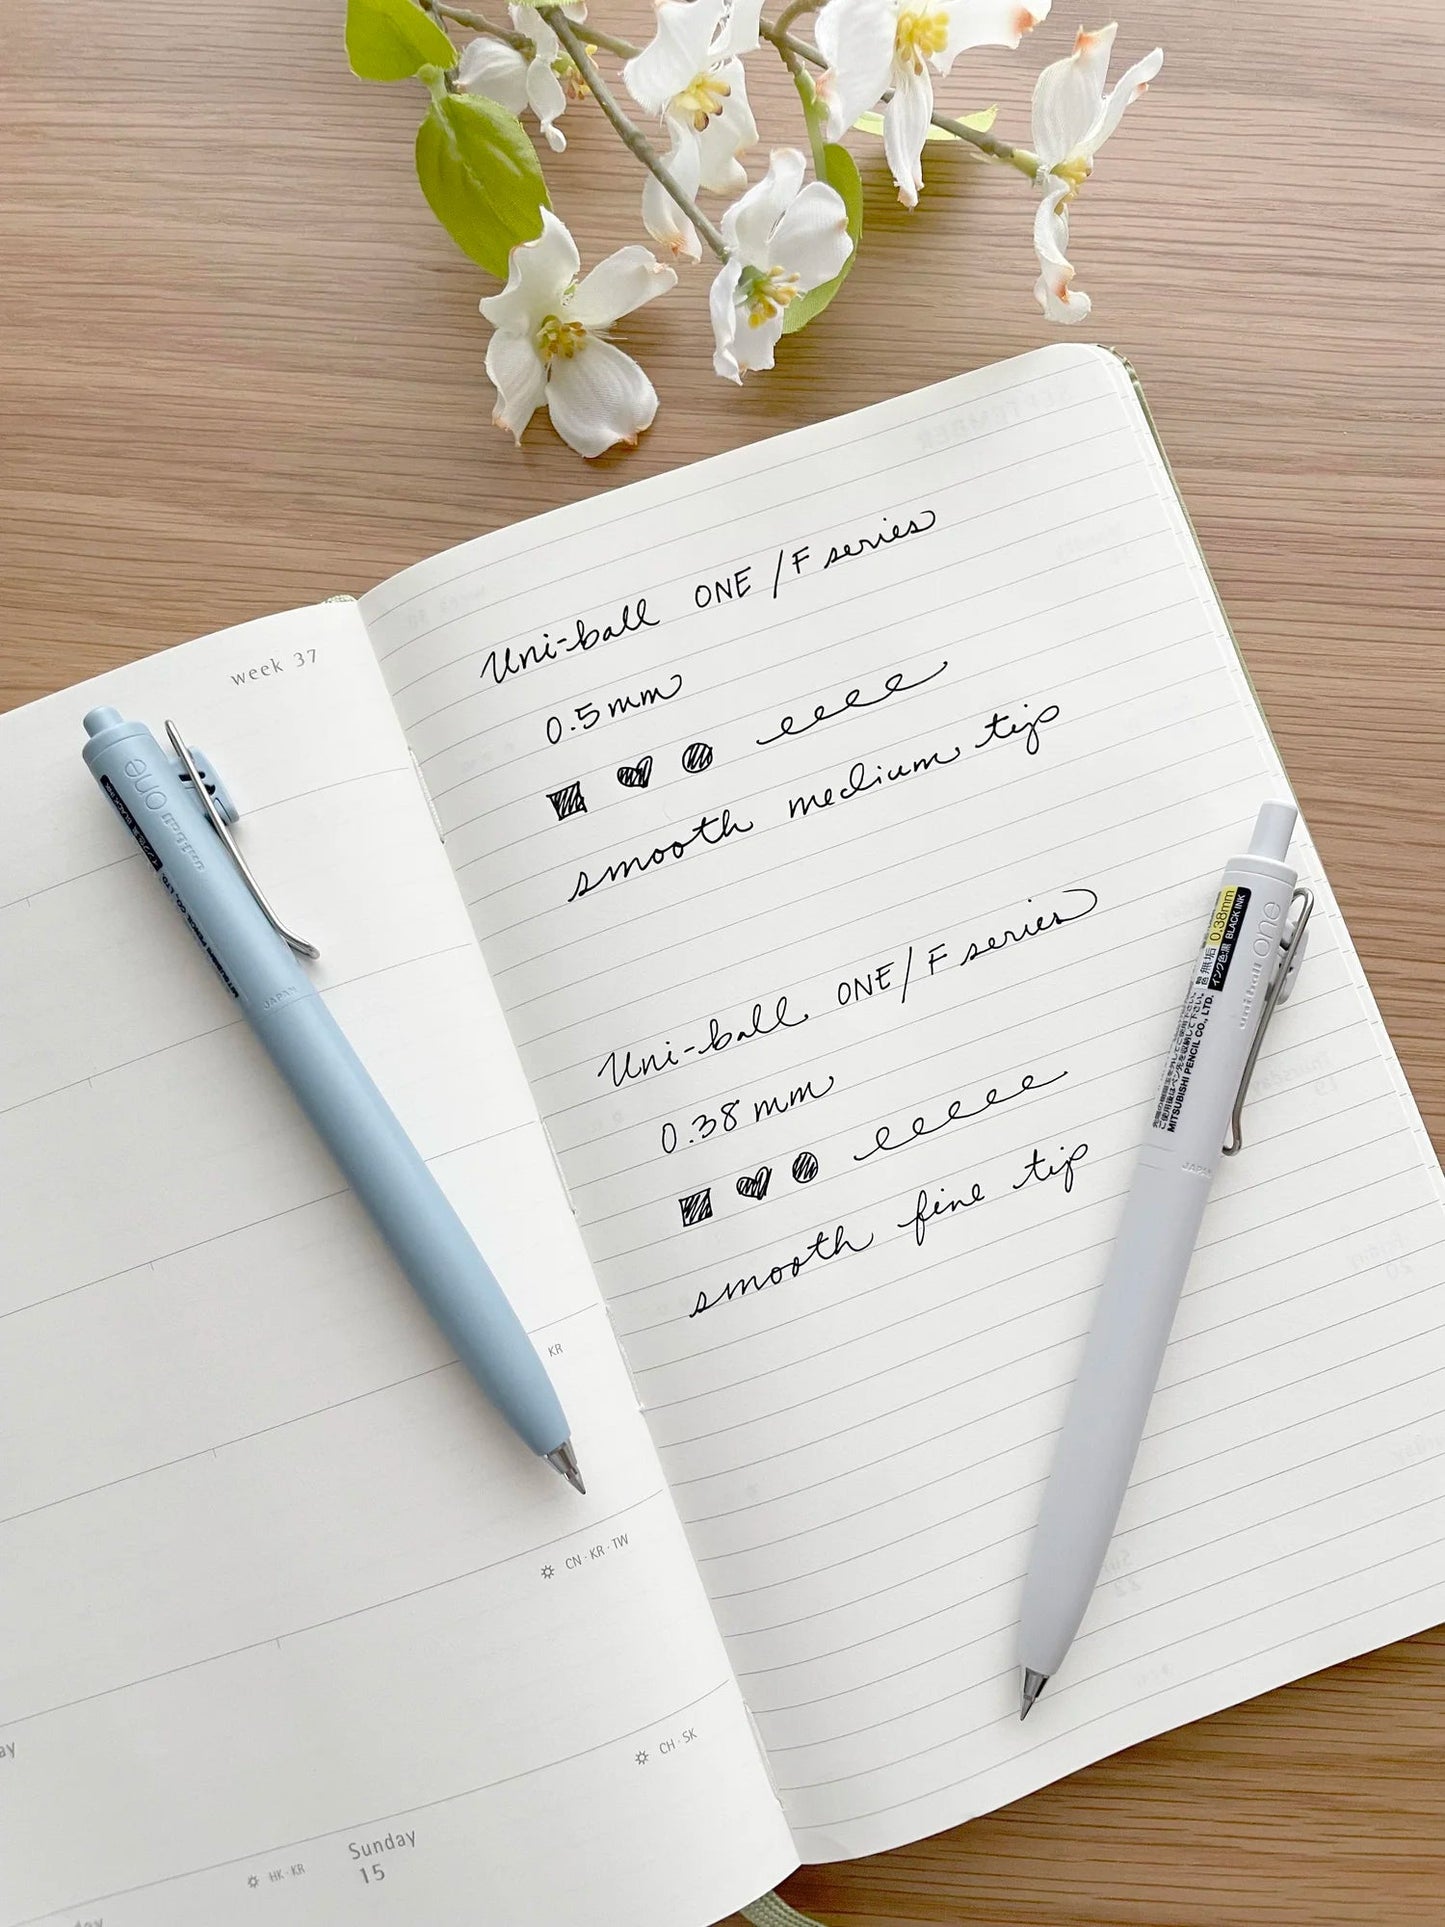 week 37
KR
CN·KR·TW
CH·SK
HK·KR
Sunday
15
Uni-ball ONE / F series
0.5 mm
smooth medium tip
Uni-ball ONE / F series
0.38 mm
smooth fine tip
uniball one
BLACK INK
MITSUBISHI PENCIL CO., LTD.
JAPAN
uniball one
0.38mm
インク色:黒 BLACK INK
MITSUBISHI PENCIL CO., LTD.
JAPAN
SEPTEMBER